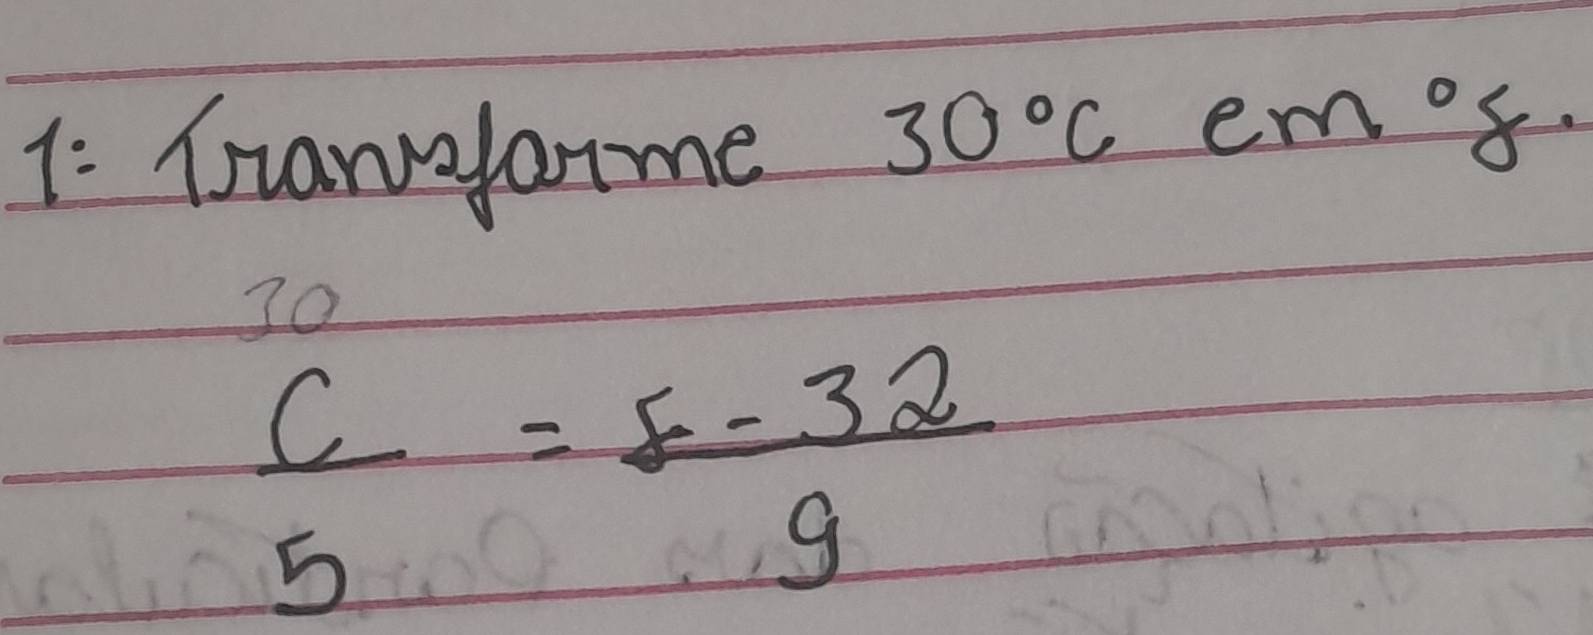 1: Transforme 30°C em °f.
30
C = f - 32
5 9